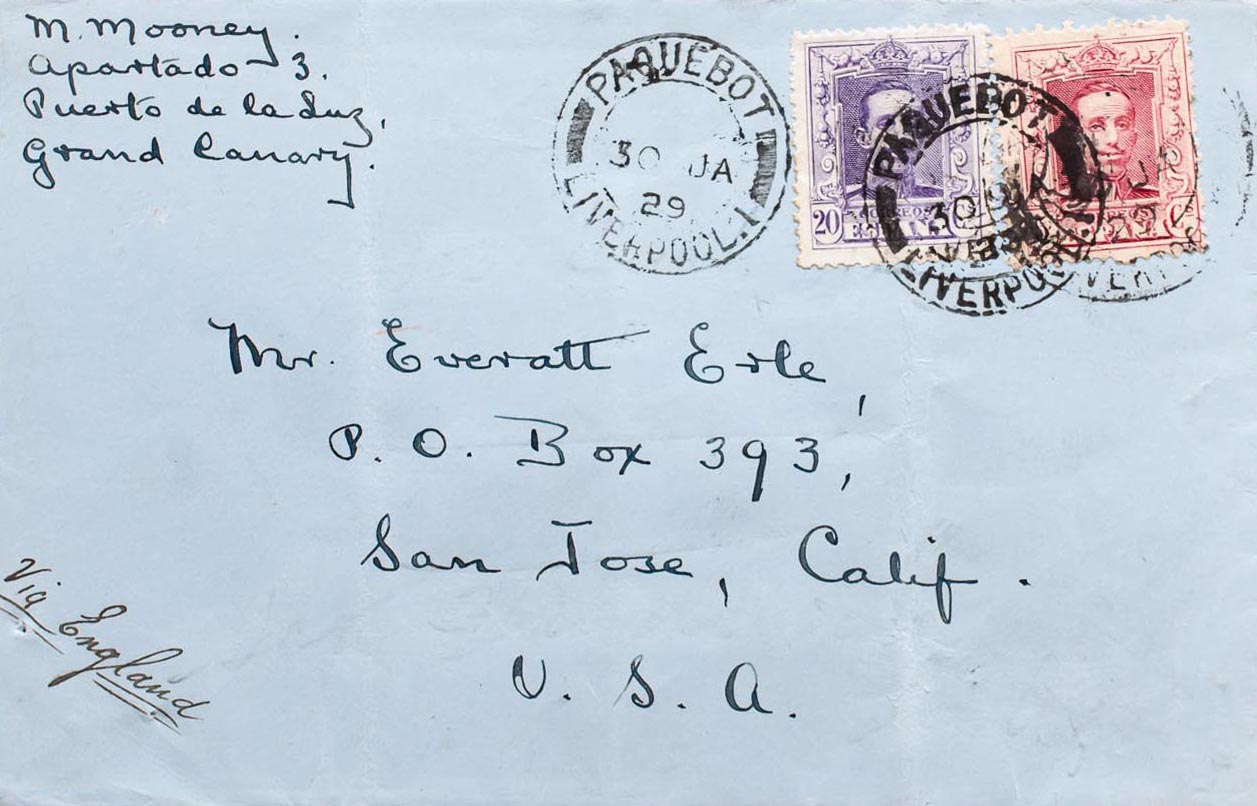 M. Mooney.
Apartado 3.
Puerto de la Luz,
Grand Canary.
PAQUEBOT
30 JA
29
LIVERPOOL. 1
20
CORREOS
ESPAÑA
PAQUEBOT
30 JA
LIVERPOOL. 1
Mr. Everatt Erle,
P. O. Box 393,
San Jose, Calif.
U. S. A.
Via England